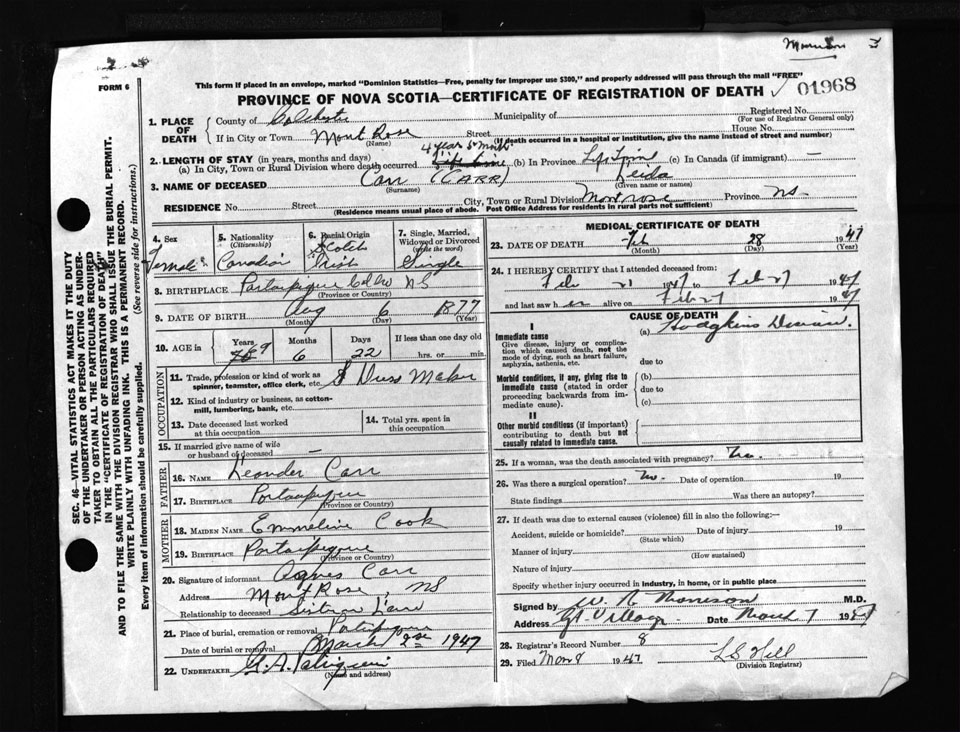 Morrison
FORM 6
This form if placed in an envelope, marked "Dominion Statistics—Free, penalty for improper use $300," and properly addressed will pass through the mail "FREE"
PROVINCE OF NOVA SCOTIA—CERTIFICATE OF REGISTRATION OF DEATH ✓ 01968
1. PLACE OF DEATH
County of Colchester Municipality of Registered No.
(For use of Registrar General only)
If in City or Town Mont Rose Street House No.
(Name) (If death occurred in a hospital or institution, give the name instead of street and number)
2. LENGTH OF STAY (in years, months and days) 4 years 5 months
(a) In City, Town or Rural Division where death occurred Life time (b) In Province Life Time (c) In Canada (if immigrant) —
3. NAME OF DECEASED Carr (CARR)
(Surname) (Given name or names)
RESIDENCE No. Street City, Town or Rural Division Montrose Province NS
(Residence means usual place of abode. Post Office Address for residents in rural parts not sufficient)
4. Sex Female
5. Nationality (Citizenship) Canadian
6. Racial Origin Scotch Irish
7. Single, Married, Widowed or Divorced (write the word) Single
8. BIRTHPLACE Portaupique Col Co NS
(Province or Country)
9. DATE OF BIRTH Aug 6 1877
(Month) (Day) (Year)
10. AGE in Years 69 Months 6 Days 22 If less than one day old hrs. or min.
OCCUPATION
11. Trade, profession or kind of work as spinner, teamster, office clerk, etc. Dress Maker
12. Kind of industry or business, as cotton-mill, lumbering, bank, etc.
13. Date deceased last worked at this occupation
14. Total yrs. spent in this occupation
15. If married give name of wife or husband of deceased —
FATHER
16. NAME Leander Carr
17. BIRTHPLACE Portaupique
(Province or Country)
MOTHER
18. MAIDEN NAME Emmeline Cook
19. BIRTHPLACE Portaupique
(Province or Country)
20. Signature of informant Agnes Carr
Address Mont Rose, NS
Relationship to deceased Sister in Law
21. Place of burial, cremation or removal Portaupique
Date of burial or removal March 2nd 1947
22. UNDERTAKER G. A.
(Name and address)
MEDICAL CERTIFICATE OF DEATH
23. DATE OF DEATH Feb 28 1947
(Month) (Day) (Year)
24. I HEREBY CERTIFY that I attended deceased from:
Feb 21 1947 to Feb 27 1947
and last saw her alive on Feb 27 1947
CAUSE OF DEATH
I
Immediate cause
Give disease, injury or complication which caused death, not the mode of dying, such as heart failure, asphyxia, asthenia, etc.
(a) Hodgkins Disease.
due to
Morbid conditions, if any, giving rise to immediate cause (stated in order proceeding backwards from immediate cause).
(b)
due to
(c)
II
Other morbid conditions (if important) contributing to death but not causally related to immediate cause.
25. If a woman, was the death associated with pregnancy? No.
26. Was there a surgical operation? No. Date of operation 19
State findings Was there an autopsy?
27. If death was due to external causes (violence) fill in also the following:—
Accident, suicide or homicide? Date of injury 19
(State which)
Manner of injury
(How sustained)
Nature of injury
Specify whether injury occurred in industry, in home, or in public place
Signed by W R Morrison M.D.
Address Gt. Village Date March 7 1947
28. Registrar's Record Number 8
29. Filed Mar 8 1947 L S Hill
(Division Registrar)
SEC. 46—VITAL STATISTICS ACT MAKES IT THE DUTY
OF THE UNDERTAKER OR PERSON ACTING AS UNDERTAKER TO OBTAIN ALL THE PARTICULARS REQUIRED
IN THE "CERTIFICATE OF REGISTRATION OF DEATH"
AND TO FILE THE SAME WITH THE DIVISION REGISTRAR WHO SHALL ISSUE THE BURIAL PERMIT.
WRITE PLAINLY WITH UNFADING INK. THIS IS A PERMANENT RECORD.
Every item of information should be carefully supplied. (See reverse side for instructions.)